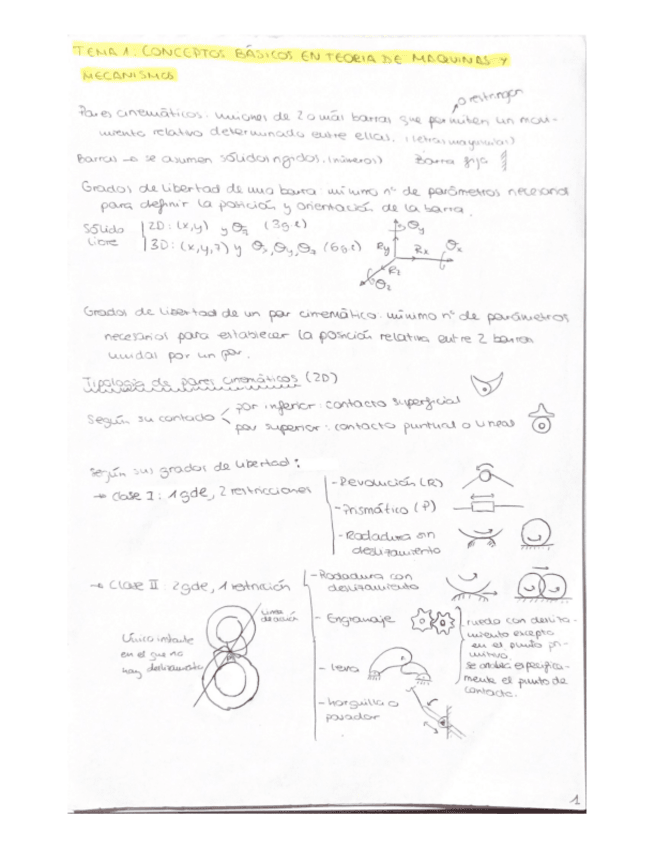 TEMA 1. CONCEPTOS BÁSICOS EN TEORIA DE MAQUINAS Y
MECANISMOS
o restringen
Pares cinemáticos: uniones de 2 o más barras que permiten un movi-
miento relativo determinado entre ellas. (letras mayúsculas)
Barras → se asumen sólidos rígidos. (números) Barra fija
Grados de libertad de una barra: mínimo nº de parámetros necesarios
para definir la posición y orientación de la barra.
Sólido libre
2D: (x,y) y θz (3gdl)
3D: (x,y,z) y θx, θy, θz (6gdl)
θy
Ry Rx θx
Rz
θz
Grados de libertad de un par cinemático: mínimo nº de parámetros
necesarios para establecer la posición relativa entre 2 barras
unidas por un par.
Tipología de pares cinemáticos (2D)
Según su contacto
par inferior: contacto superficial
par superior: contacto puntual o lineal
Según sus grados de libertad:
→ Clase I: 1 gde, 2 restricciones
- Revolución (R)
- Prismático (P)
- Rodadura sin
deslizamiento
→ Clase II: 2gde, 1 restricción
- Rodadura con
deslizamiento
- Engranaje
rueda con desliza-
miento excepto
en el punto pri-
mitivo.
se analiza específica-
mente el punto de
contacto.
- leva
- horquilla o
pasador
Línea
de acción
Único instante
en el que no
hay deslizamiento
1